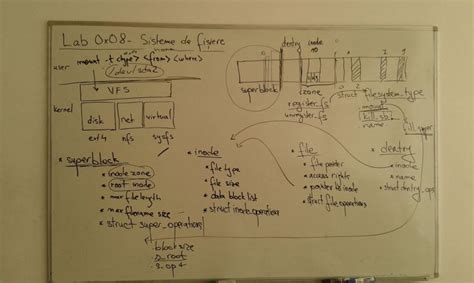 Lab 0x08 - Sisteme de fișiere
user
mount -t <type> <from> <where>
/dev/sda2
VFS
kernel
disk net virtual
ext4 nfs sysfs
dentry
superblock
izone
struct filesystem_type
register_fs
unregister_fs
mount
kill_sb
name
kill_super
* superblock
* inode zone
* root inode
* max file length
* max filename size
* struct super_operations
blocksize
s_root
s_op
* inode
* file type
* file size
* data block list
* struct inode_operations
* file
* file pointer
* access rights
* pointer to inode
* struct file_operations
* dentry
* inode
* name
* struct dentry_ops